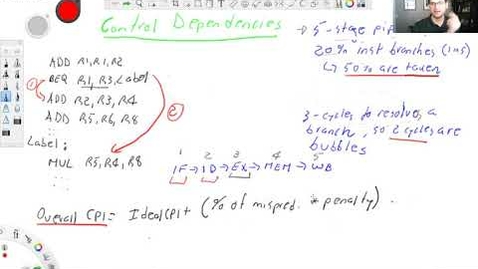 Control Dependencies
ADD R1, R1, R2
BEQ R1, R3, Label
ADD R2, R3, R4
ADD R5, R6, R8
Label:
MUL R5, R4, R8
1
2
→ 5-stage
20% inst branches
↳ 50% are taken
3-cycles to resolve a
branch, so 2 cycles are
bubbles
1 2 3 4 5
IF → ID → EX → MEM → WB
Overall CPI = Ideal CPI + (% of mispred. * penalty).